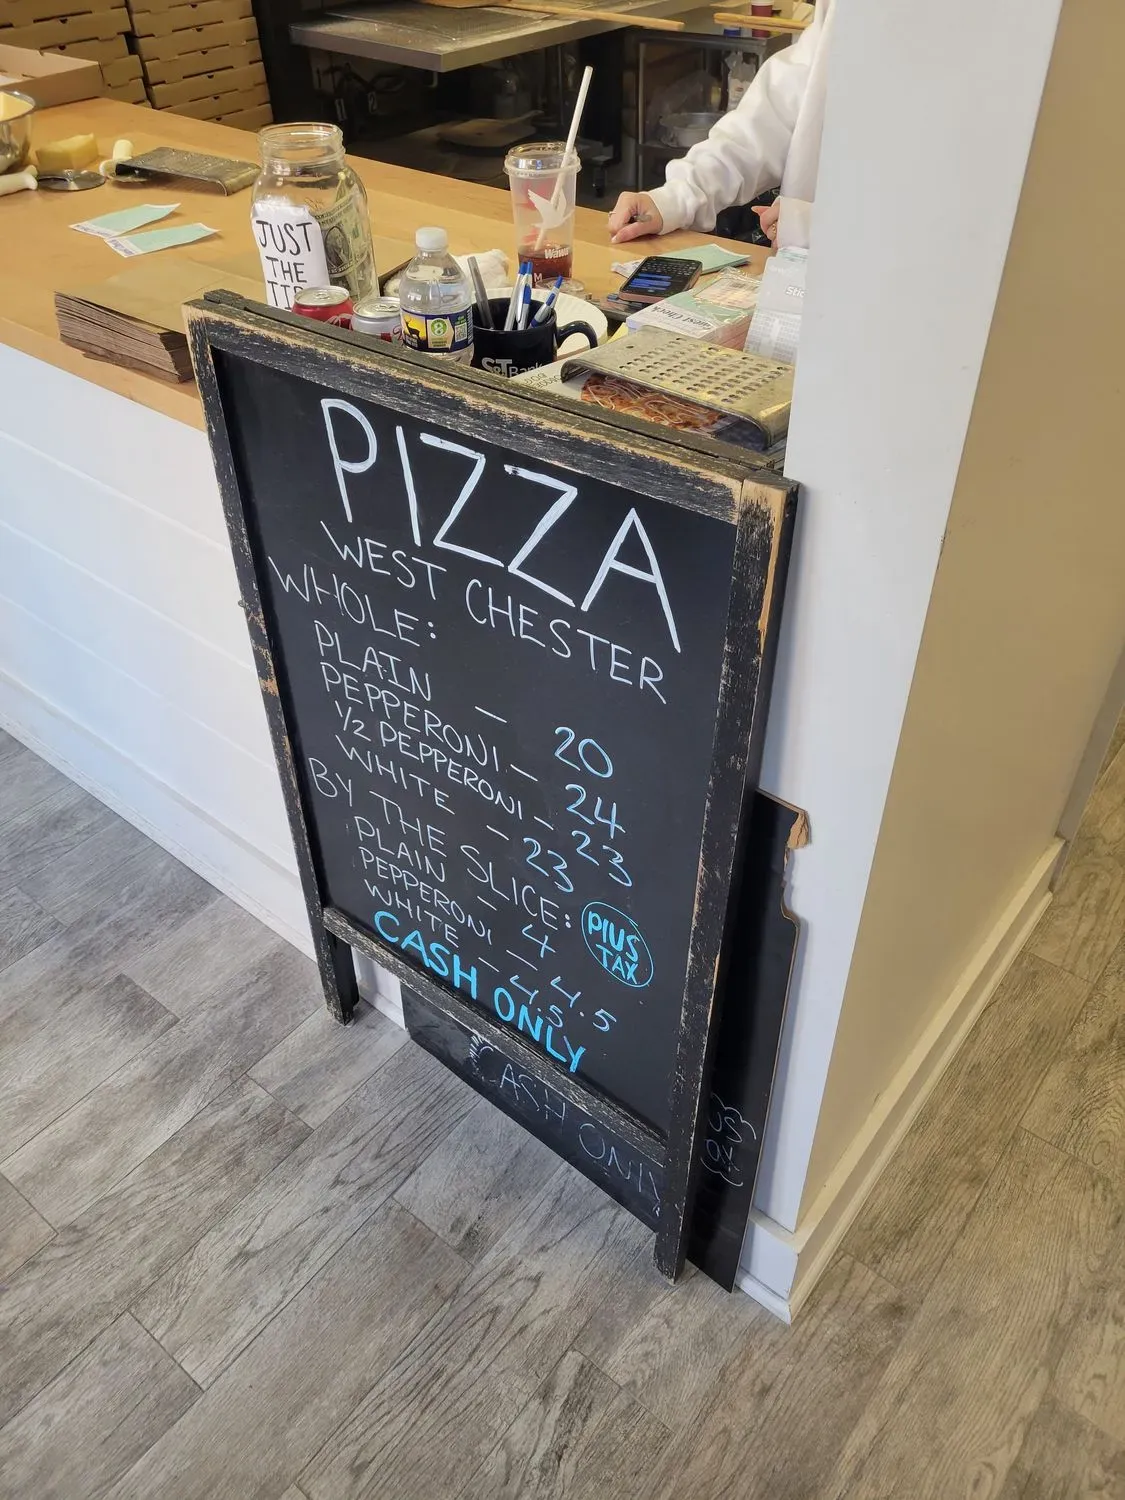 JUST
THE
TIP
Wawa
M
S&T Bank
Guest Check
PIZZA
WEST CHESTER
WHOLE:
PLAIN — 20
PEPPERONI — 24
1/2 PEPPERONI — 23
WHITE — 23
BY THE SLICE:
PLAIN — 4
PEPPERONI — 4.5
WHITE — 4.5
PLUS
TAX
CASH ONLY
CASH ONLY